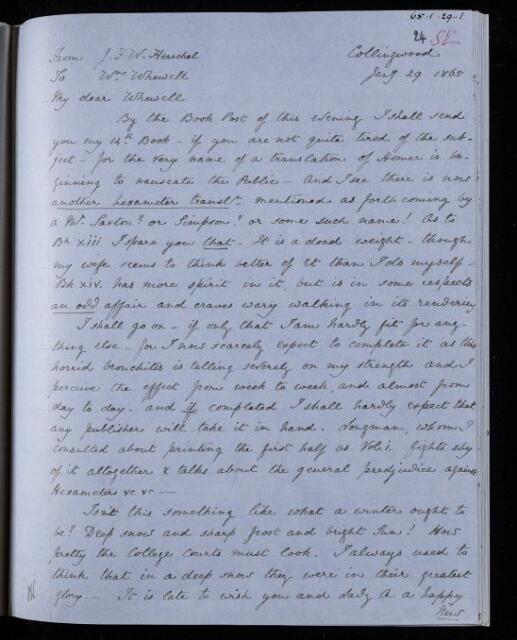 65-1-29-1
24 SE
From J. F. W. Herschel Collingwood
To Wm Whewell Jany 29 1865
My dear Whewell
By the Book Post of this evening I shall send
you my 14th Book - if you are not quite tired of the sub-
ject - for the very name of a translation of Homer is be-
ginning to nauseate the Public - And I see there is now
another hexameter transln mentioned as forthcoming by
a Mr Saxton? or Simpson? or some such name! As to
Bk xiii I spare you that. It is a dead weight - though
my wife seems to think better of it than I do myself -
Bk xiv. has more spirit in it, but is in some respects
an odd affair and craves wary walking in its rendering
I shall go on - if only that I am hardly fit for any-
thing else - for I now scarcely expect to complete it as this
horrid bronchitis is telling severely on my strength and I
perceive the effect from week to week and almost from
day to day - and if completed I shall hardly expect that
any publisher will take it in hand. Longman, whom I
consulted about printing the first half as Vol i. fights shy
of it altogether & talks about the general predjudice against
Hexameters &c &c —
Isn't this something like what a winter ought to
be? Deep snow and sharp frost and bright Sun! How
pretty the College courts must look. I always used to
think that in a deep snow they were in their greatest
glory - It is late to wish you and Lady A a happy
New